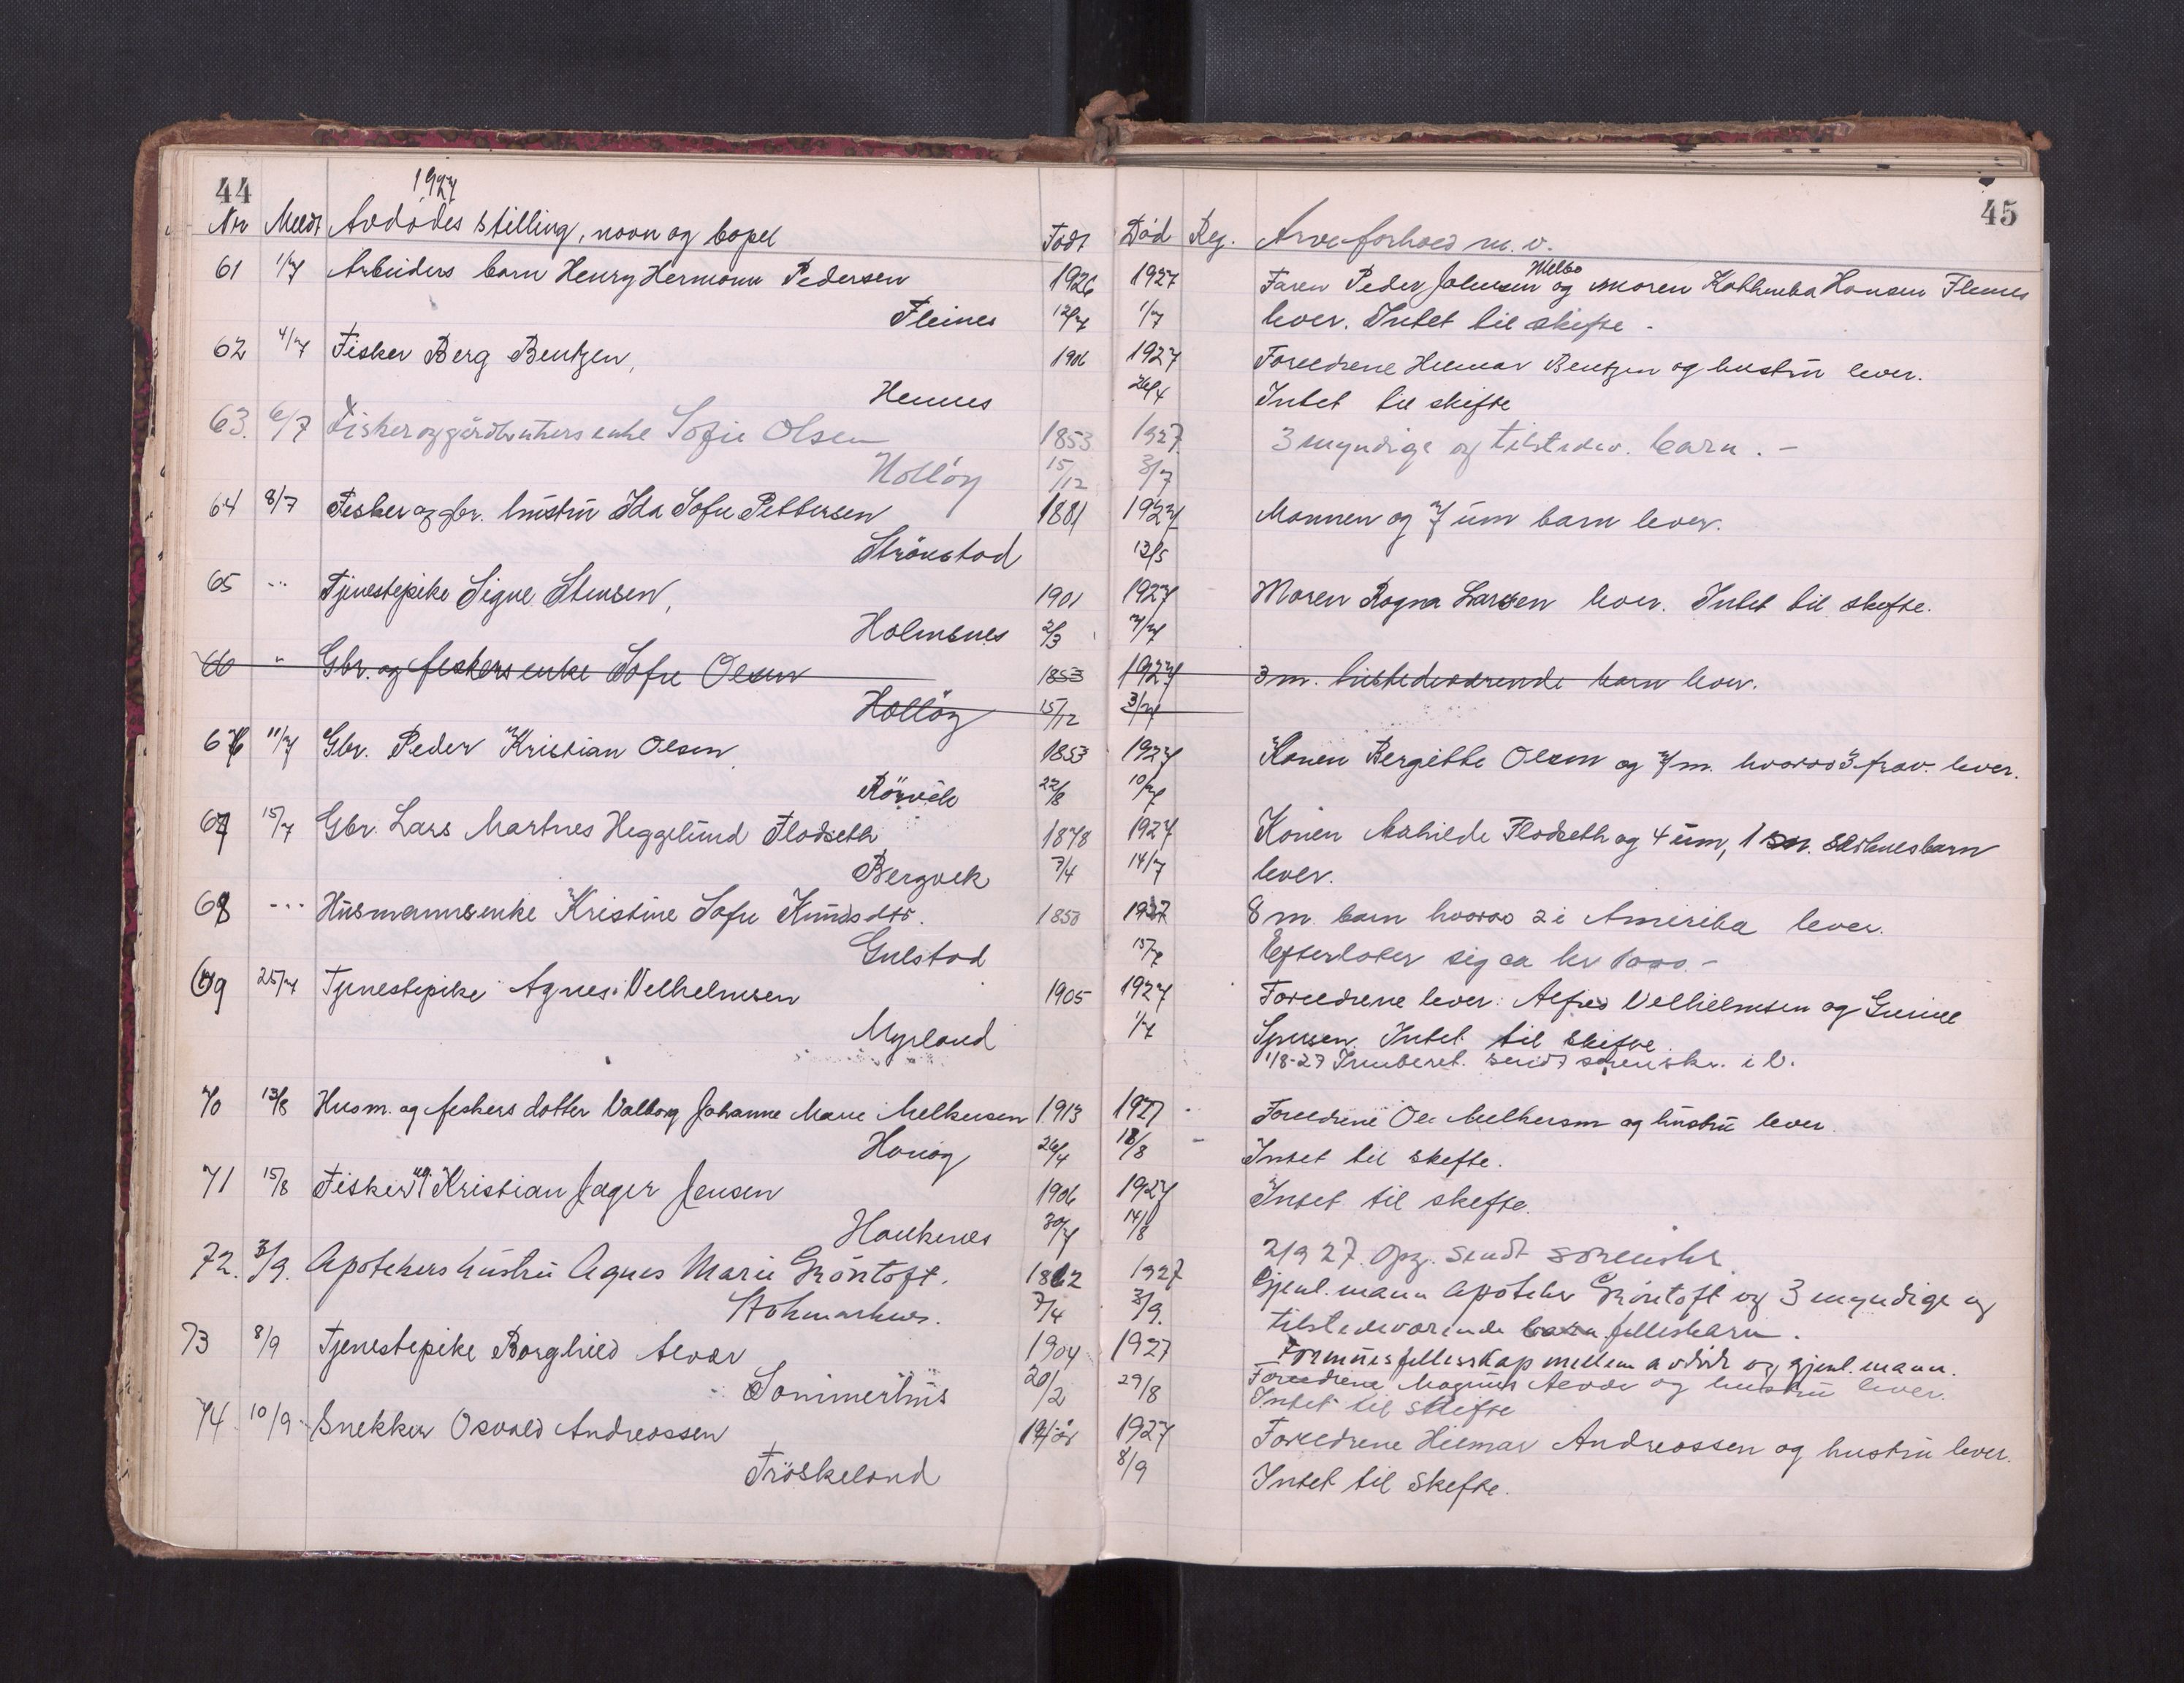 44
1927
45
Nr Meldt Avdødes stilling, navn og bopel Født Død Reg. Arveforhold m. v.
61 1/7 Arbeiders barn Henry Hermann Pedersen 1926 1927 Faren Peder Johnsen Melbo og moren Hansen Fleines
Fleines 1/7 lever. Intet til skifte -
62 4/7 Fisker Berg Bentzen, 1906 1927 Foreldrene Hilmar Bentzen og hustru lever.
Hennes 26/4 Intet til skifte
63. 6/7 Fisker og gårdbrukers enke Sofie Olsen 1853 1927 3 myndige og tilstedev. barn. -
Holløy 15/12 3/7
64 8/7 Fisker og gbr. hustru Ida Sofie Pettersen 1881 1927 Mannen og 7 um barn lever.
Strønstad 13/5
65 ... Tjenestepike Signe Stensen, 1901 1927 Moren Ragna Larsen lever. Intet til skifte.
Holmsnes 2/3 7/7
66 " Gbr. og fiskers enke Sofie Olsen 1853 1927 3 m. tilstedeværende barn lever.
Holløy 15/12 3/7
66 11/7 Gbr. Peder Kristian Olsen 1853 1927 Konen Bergitte Olsen og 7 m. hvorav 3 frav. lever.
Rørvik 22/8 10/7
67 15/7 Gbr. Lars Martnes Heggelund Flodseth 1878 1927 Konen Mathilde Flodseth og 4 um, 1 m. særkulsbarn
Bergvik 7/4 14/7 lever.
68 ... Husmannsenke Kristine Sofie Knudsdtr. 1850 1927 8 m. barn hvorav 2 i Amerika lever.
Gulstad 15/7 Efterlater sig ca kr 1000.-
69 25/7 Tjenestepike Agnes Vilhelmsen 1905 1927 Foreldrene lever: Alfred Vilhelmsen og
Myrland 1/7 Intet til skifte
1/8-27 Innberet. sendt sorenskr. i V.
70 13/8 Husm. og fiskers datter Valborg Johanne Marie Melkersen 1913 1927 Foreldrene Ole Melkersen og hustru lever.
26/4 Intet til skifte.
71 15/8 Fisker ug. Kristian Jager Jensen 1906 1927 Intet til skifte.
Haukenes 30/7 14/8
2/9 27. Opg. sendt sorenskr.
72. 3/9. Apotekers hustru Agnes Marie Grøntoft. 1862 1927 Gjenl. mann apoteker Grøntoft og 3 myndige og
Stokmarknes. 7/4 3/9. tilstedeværende barn fellesbarn.
Formuesfellesskap mellem avdøde og gjenl. mann.
73 8/9 Tjenestepike Borghild Alvær 1904 1927 Foreldrene Magnus Alvær og hustru lever.
Sommerhus 20/2 29/8 Intet til skifte
74 10/9 Snekker Osvald Andreassen 1927 Foreldrene Hilmar Andreassen og hustru lever.
Frøskeland 8/9 Intet til skifte.